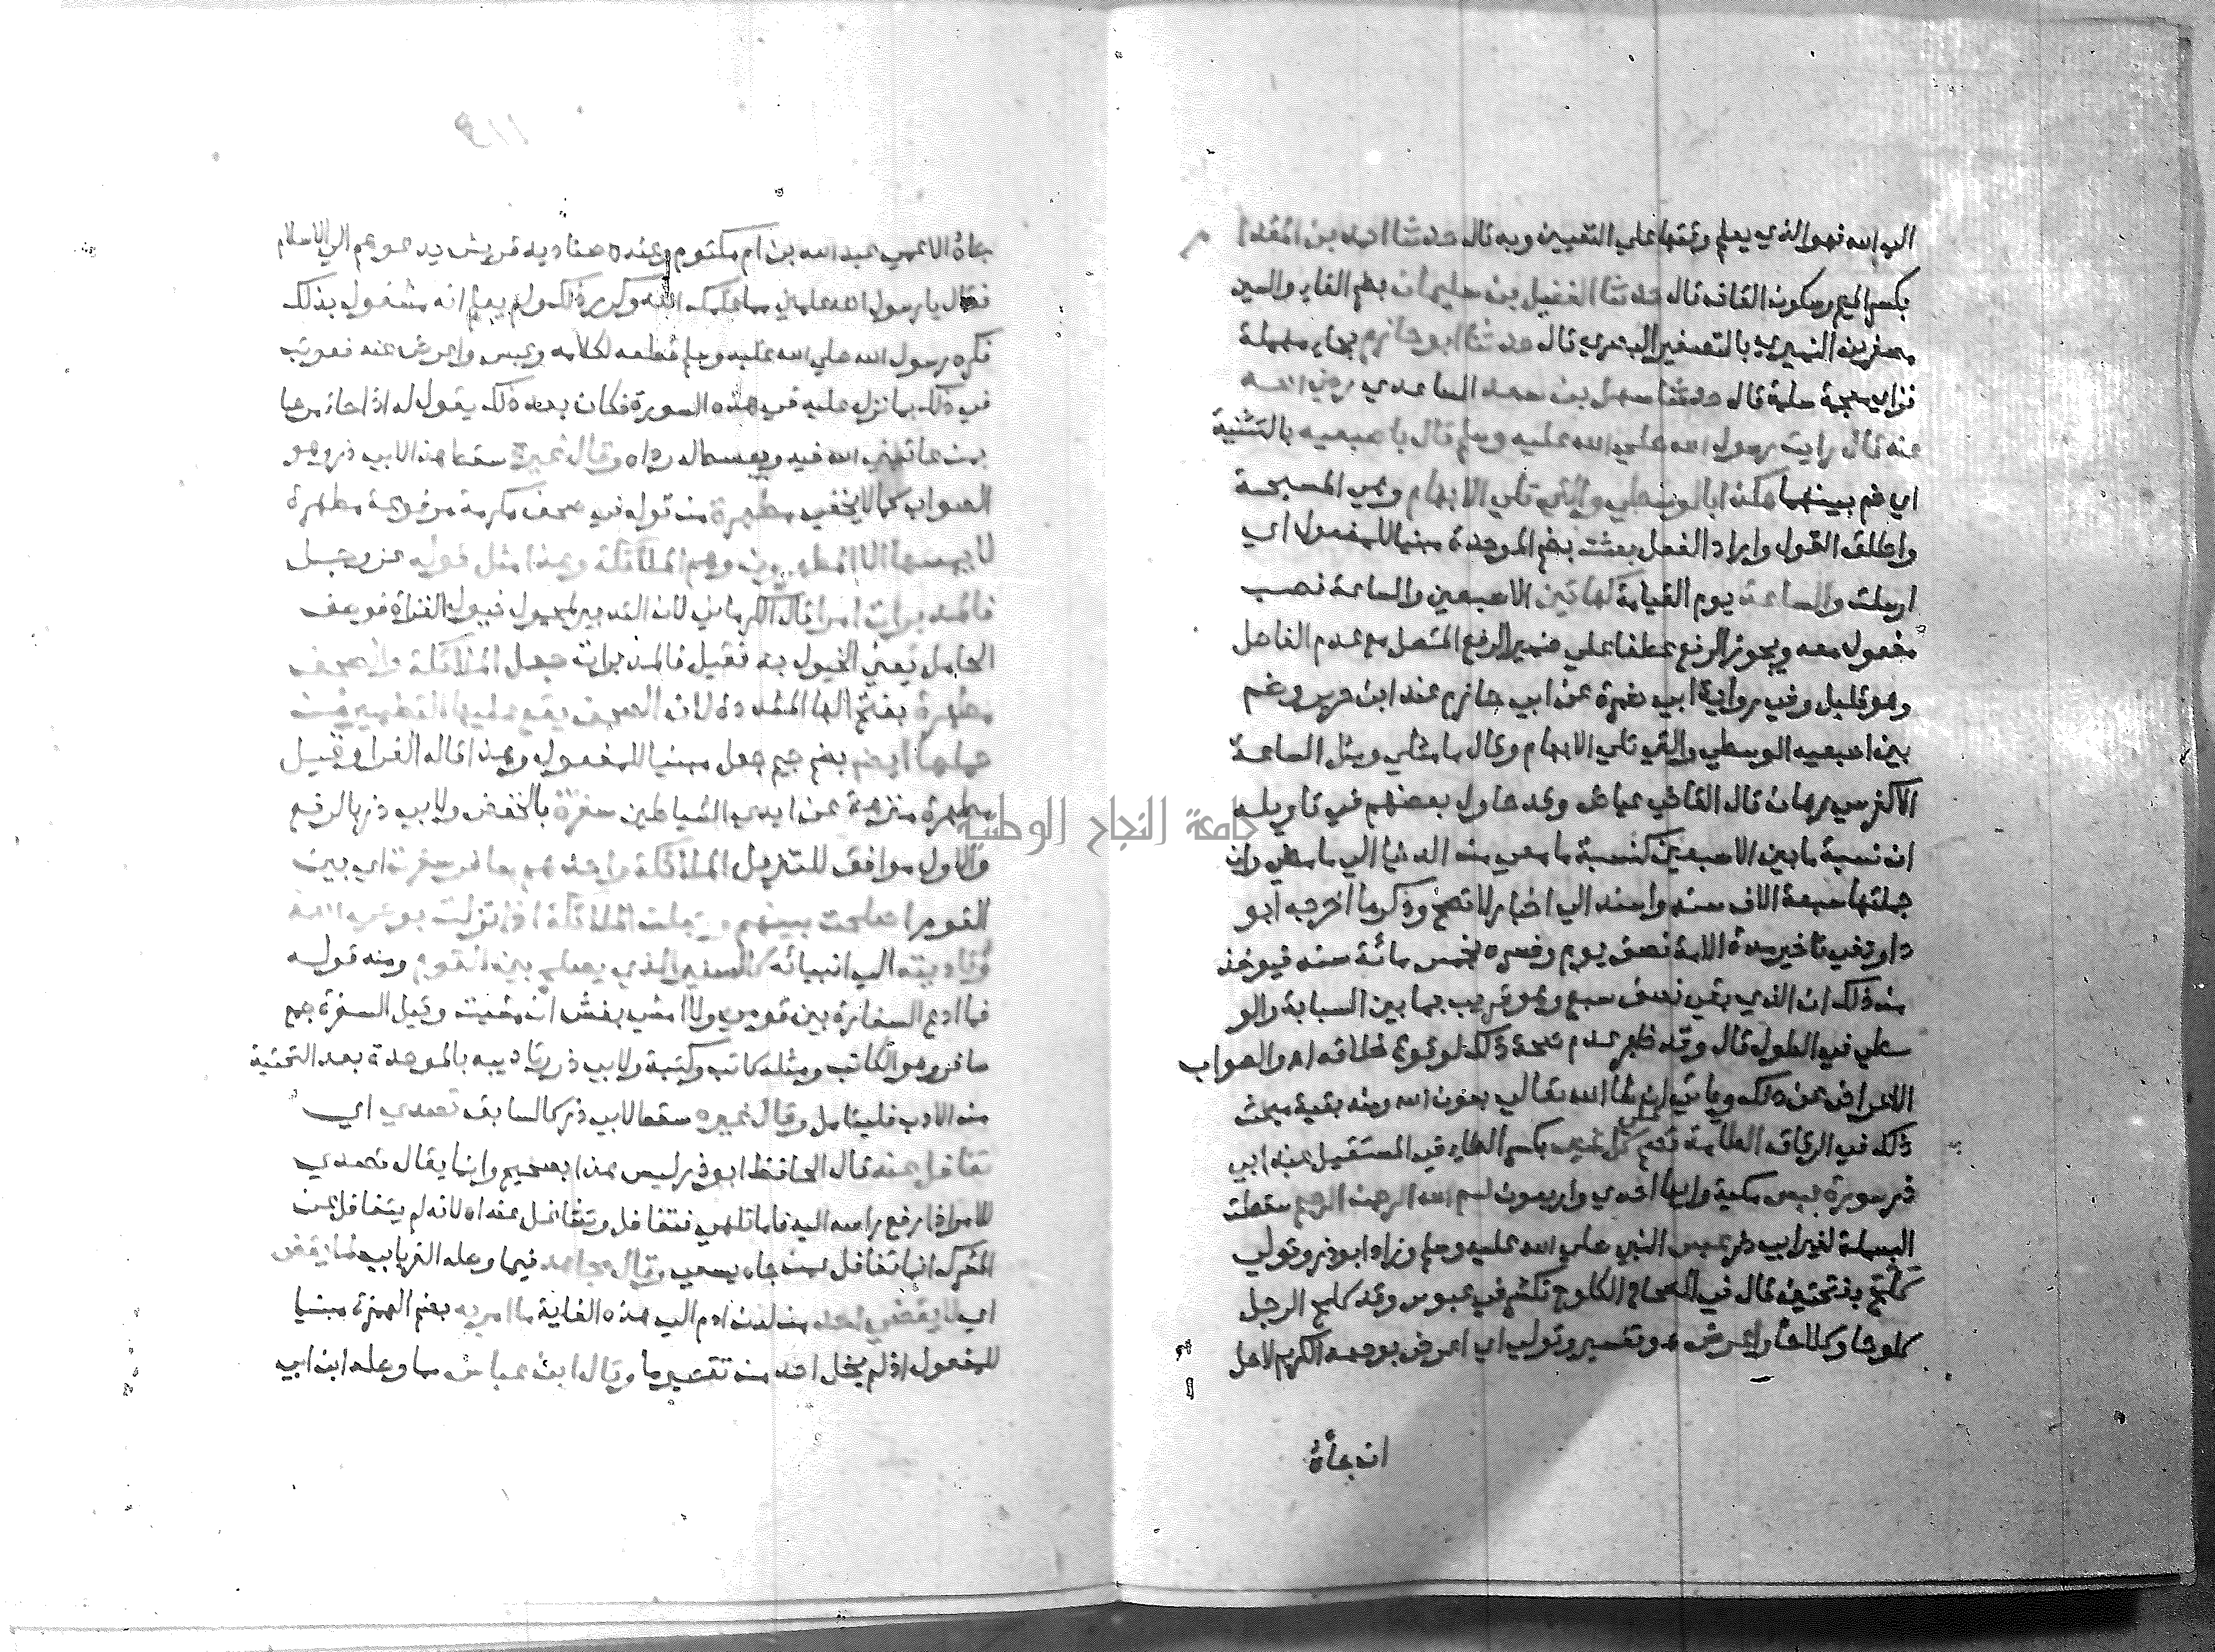 الى الله فهو الذي يعلم وقتها على التعيين وبه قال حدثنا احمد بن المقدا
بكسر الميم وسكون القاف قال حدثنا الفضيل بن سليمان بضم الفاء والسين
مصغرين النميري بالتصغير البصري قال حدثنا ابو حازم بحاء مهملة
فزاي معجمة سلمة قال حدثنا سهل بن سعد الساعدي رضي الله
عنه قال رايت رسول الله صلى الله عليه وسلم قال باصبعيه بالتثنية
اي ضم بينهما هكذا بالوسطي والتي تلي الابهام وهي المسبحة
واطلق القول واراد الفعل بعثت بضم الموحدة مبنيا للمفعول اي
ارسلت والساعة يوم القيامة كهاتين الاصبعين والساعة نصب
مفعول معه ويجوز الرفع عطفا على ضمير الرفع المتصل مع عدم الفاصل
وهو قليل وفي رواية ابي ضمرة عن ابي حازم عند ابن جرير وضم
بين اصبعيه الوسطي والتي تلي الابهام وقال ما مثلي ومثل الساعة
الا كفرسي رهان قال القاضي عياض وقد حاول بعضهم في تاويله
ان نسبة ما بين الاصبعين كنسبة ما بقي من الدنيا الي ما مضي وان
جملتها سبعة الاف سنة واستند الي اخبار لا تصح وذكر ما اخرجه ابو
داود في تاخير مدة الامة نصف يوم وفسره بخمس مائة سنة فيوخذ
من ذلك ان الذي بقي نصف سبع وهو قريب مما بين السبابة والو
سطي في الطول قال وقد ظهر عدم صحة ذلك لوقوع خلافه اه والصواب
الاعراض عن ذلك وياتي ان شا الله تعالي بعون الله ومنه بقية مبحث
ذلك في الرقاق الطامة تطم كل شي بكسر الطاء في المستقيل عند ابي
ذر سورة عبس مكية وايها احدي واربعون بسم الله الرحمن الرحيم سقطت
البسملة لغير ابي ذر عبس النبي صلى الله عليه وسلم وزاد ابو ذر وتولي
كلح بفتحتين قال في الصحاح الكلوح تكشر في عبوس وقد كلح الرجل
كلوحا وكلاحا واعرض هو تفسير وتولي اي اعرض بوجهه الكريم لاجل
ان جاءه
جاءه الاعمي عبد الله بن ام مكتوم وعنده صناديد قريش يدعوهم الي الاسلام
فقال يا رسول الله علمني مما علمك الله وكرر ذلك ولم يعلم انه مشغول بذلك
فكره رسول الله صلى الله عليه وسلم قطعه لكلامه وعبس واعرض عنه فعوتب
في ذلك بما نزل عليه في هذه السورة فكان بعد ذلك يقول له اذا جاء مرحبا
بمن عاتبني الله فيه ويبسط له رداه وقال غيره سقط هذا لابي ذر وهو
الصواب كما لا يخفي مطهرة من قوله في صحف مكرمة مرفوعة مطهرة
لا يمسها الا المطهرون وهم الملائكة وهذا مثل قوله عز وجل
فالمدبرات امرا قال الكرماني لان التدبير لمحمول خيول الغزاة فوصف
الحامل يعني الخيول به فقيل فالمدبرات جعل الملائكة والصحف
مطهرة بفتح الهاء المشددة لان الصحف يقع عليها التطهير فجعل التطهير لمن
حملها ايضا بضم جيم جعل مبنيا للمفعول وهذا قاله الفرا وقيل
مطهرة منزهة عن ايدي الشياطين سفرة بالخفض ولابي ذر بالرفع
والاول موافق للتنزيل الملائكة واحدهم سافر سفرت اي بين
القوم اصلحت بينهم وجعلت الملائكة اذا نزلت بوحي الله
وتاديته الي انبيائه كالسفير الذي يصلح بين القوم ومنه قوله
فما ادع السفارة بين قومي ولا امشي بغش ان مشيت وقيل السفرة جمع
سافر وهو الكاتب ومثله كاتب وكتبة ولابي ذر وتاديبه بالموحدة بعد التحتية
من الادب فليتامل وقال غيره سقط لابي ذر كالسابق تصدي اي
تغافل عنه قال الحافظ ابو ذر ليس هذا بصحيح وانما يقال تصدي
للامر اذا رفع راسه اليه فاما تلهي فتغافل وتشاغل عنه اه لانه لم يتغافل عن
المشرك انما تغافل عمن جاه يسعي وقال مجاهد فيما وصله الفريابي لما يقض
اي لا يقضي احد من لدن ادم الي هذه الغاية ما امر به بضم الهمزة مبنيا
للمفعول اذ لم يخل احد من تقصير ما وقال ابن عباس مما وصله ابن ابي
جامعة النجاح الوطنية